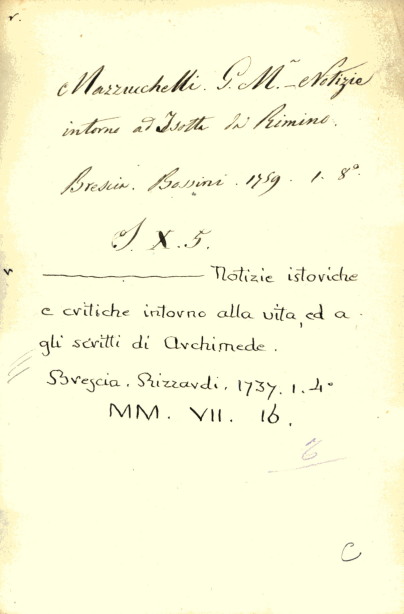 r.
Mazzucchelli. G. Mª – Notizie
intorno ad Isotta da Rimino.
Brescia. Bossini. 1759. 1. 8º.
S. X. 5.
r ———— Notizie istoriche
e critiche intorno alla vita, ed a-
gli scritti di Archimede.
Brescia. Rizzardi. 1737. 1. 4º
MM. VII. 16.
C